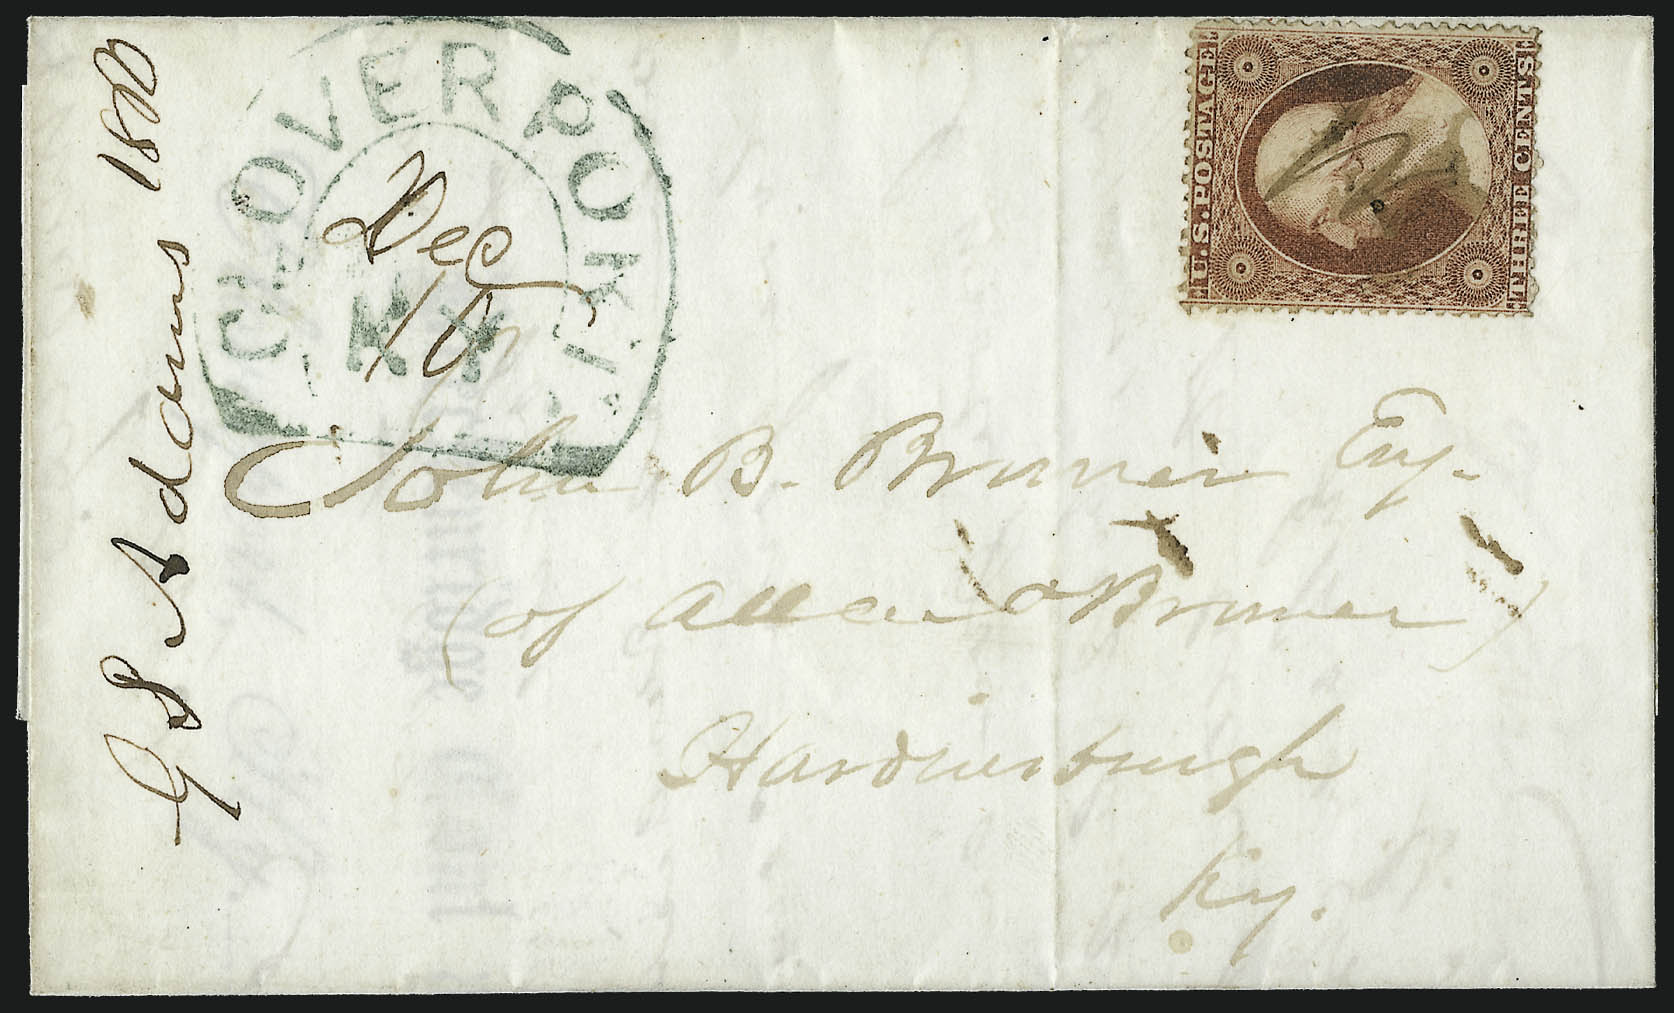 CLOVERPORT
Dec
10
KY
U.S. POSTAGE
THREE CENTS
G S Adams 1860
John B. Bruner Esq.
(of Allen & Bruner)
Hardinsburgh
Ky.